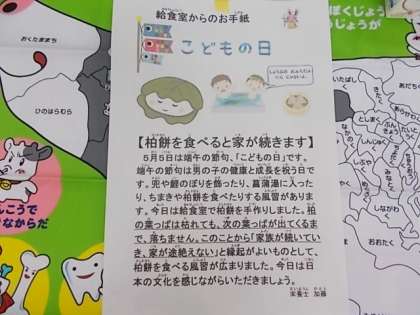 給食室からのお手紙
こどもの日
しょうぶの おふろは きもちいいよ
【柏餅を食べると家が続きます】
５月５日は端午の節句、「こどもの日」です。
端午の節句は男の子の健康と成長を祝う日で
す。兜や鯉のぼりを飾ったり、菖蒲湯に入った
り、ちまきや柏餅を食べたりする風習がありま
す。今日は給食室で柏餅を手作りしました。柏
の葉っぱは枯れても、次の葉っぱが出てくるまで、
落ちません。このことから「家族が続いてい
き、家が途絶えない」と縁起がよいものとして、
柏餅を食べる風習が広まりました。今日は日
本の文化を感じながらいただきましょう。
栄養士 加藤
おくたままち
ひのはらむら
んこうで
なからだ
ぼくじょう
じょうが
いたばしく
きたく
あだちく
あらかわく
としまく
ぶんきょうく
しんじゅくく
しぶやく
みなとく
めぐろく
しながわく
おおたく